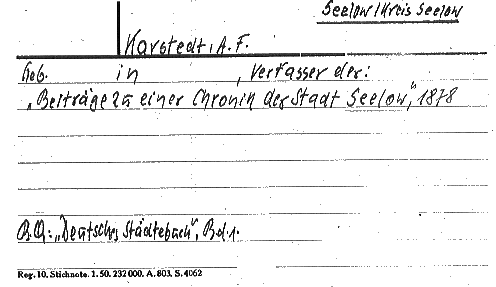 Seelow/Kreis Seelow
Karstedt, A.F.
Geb. in , Verfasser der:
„Beiträge zu einer Chronik der Stadt Seelow", 1878
B.Q.: „Deutsches Städtebuch", Bd.1.
Reg. 10. Stichnote. 1. 50. 232000. A. 803. S. 4062